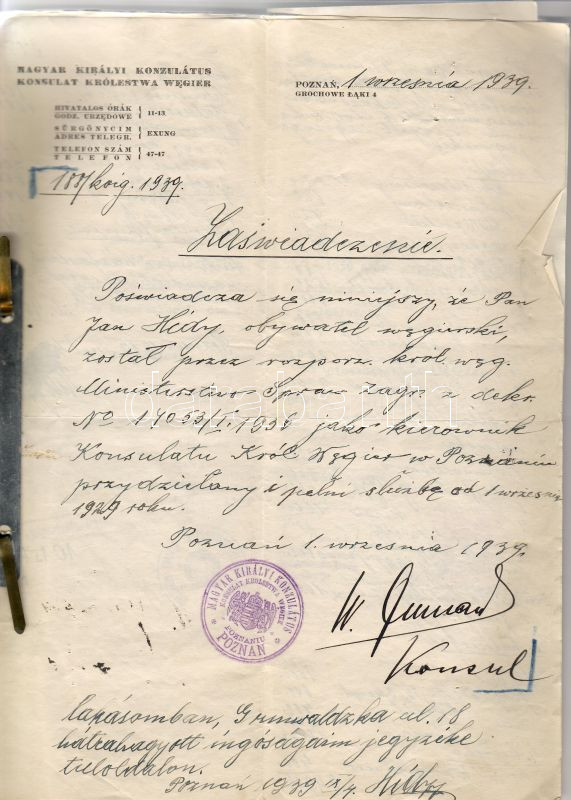 MAGYAR KIRÁLYI KONZULÁTUS
KONSULAT KRÓLESTWA WĘGIER
POZNAŃ, 1 września 1939.
GROCHOWE ŁĄKI 4
HIVATALOS ÓRÁK
GODZ. URZĘDOWE
11-13
SÜRGÖNYCIM
ADRES TELEGR.
EXUNG
TELEFON SZÁM
TELEFON
47-47
1939.
Zaświadczenie.
Poświadcza się niniejszy, że Pan
Jan Hidy, obywatel węgierski,
został przez rozporz. król. węg.
Ministerstwo Spraw Zagr. z dekr.
No jako kierownik
Konsulatu Król. Węgier w Poznaniu
przydzielany i pełni służbę od 1 wrześnie
1929 roku.
Poznań 1. września 1939.
MAGYAR KIRÁLYI KONZULÁTUS
KONSULAT KRÓLESTWA WĘGIER
POZNANIU
POZNAŃ
W.
Konsul
lakásomban, Grunwaldzka ul. 18
hátrahagyott ingóságaim jegyzéke
tuloldalon.
Poznań 1939 Hidy